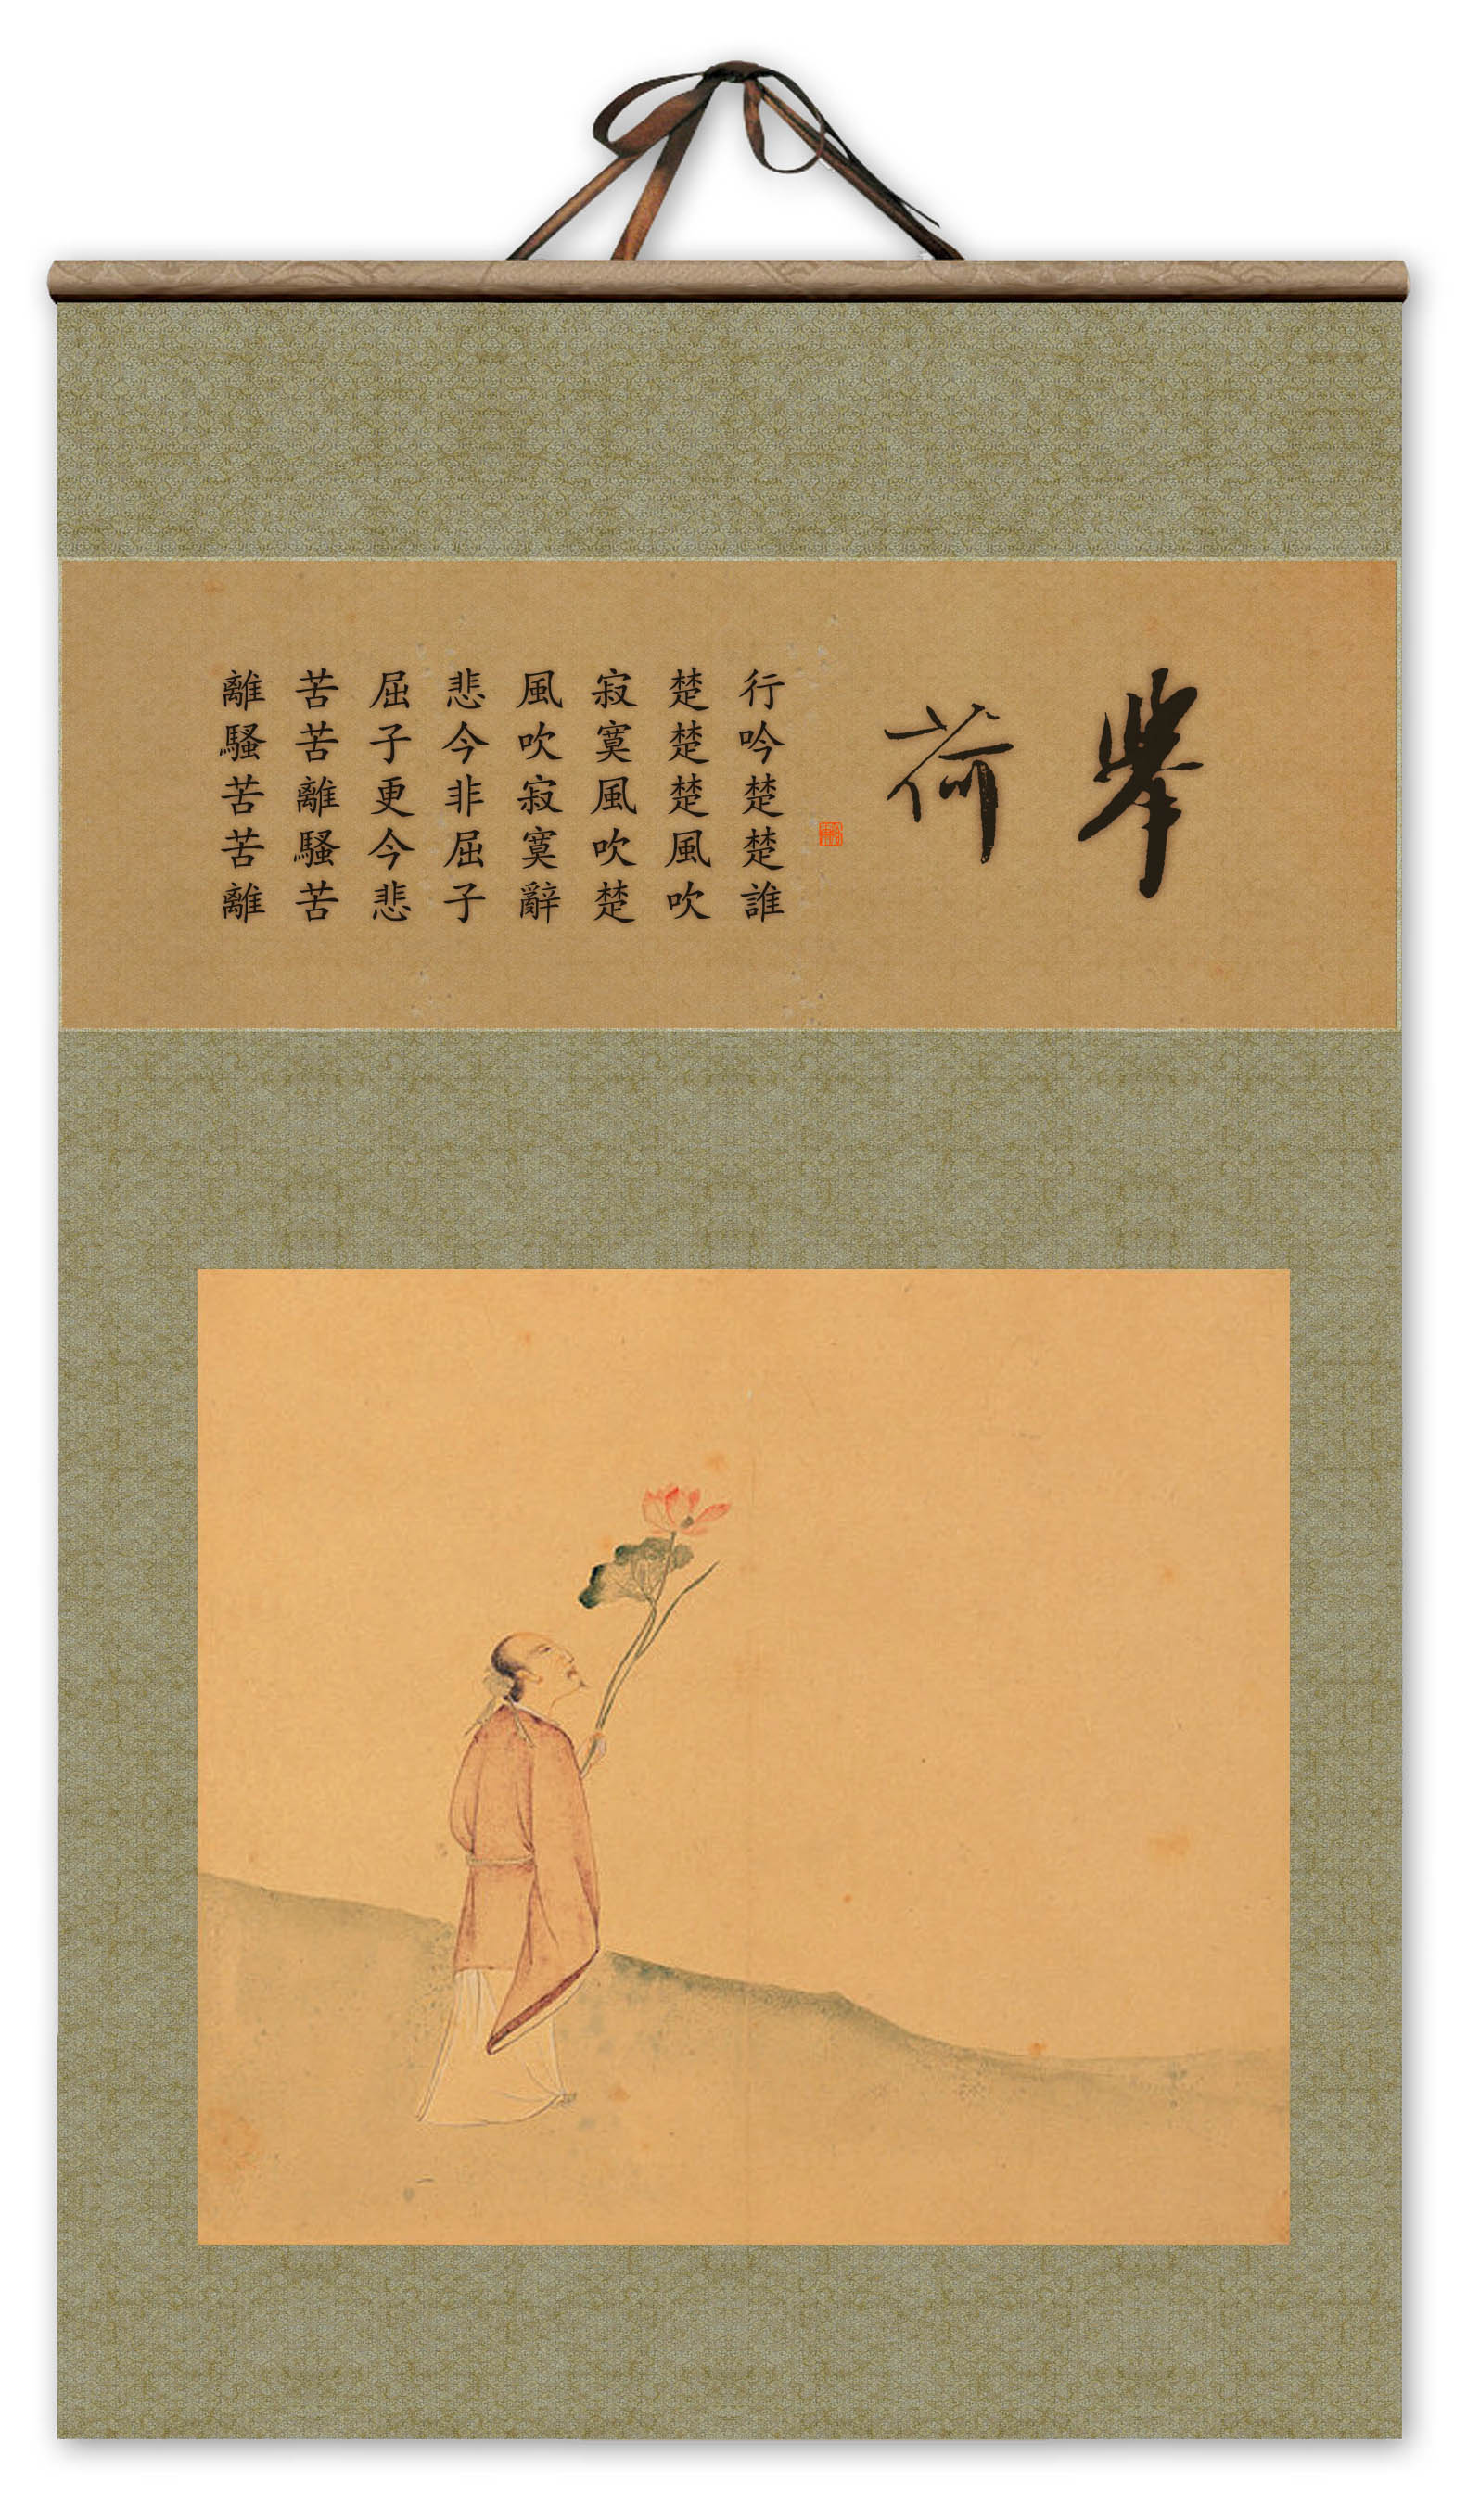 舉荷
行吟楚楚誰
楚楚楚風吹
寂寞風吹楚
風吹寂寞辭
悲今非屈子
屈子更今悲
苦苦離騷苦
離騷苦苦離